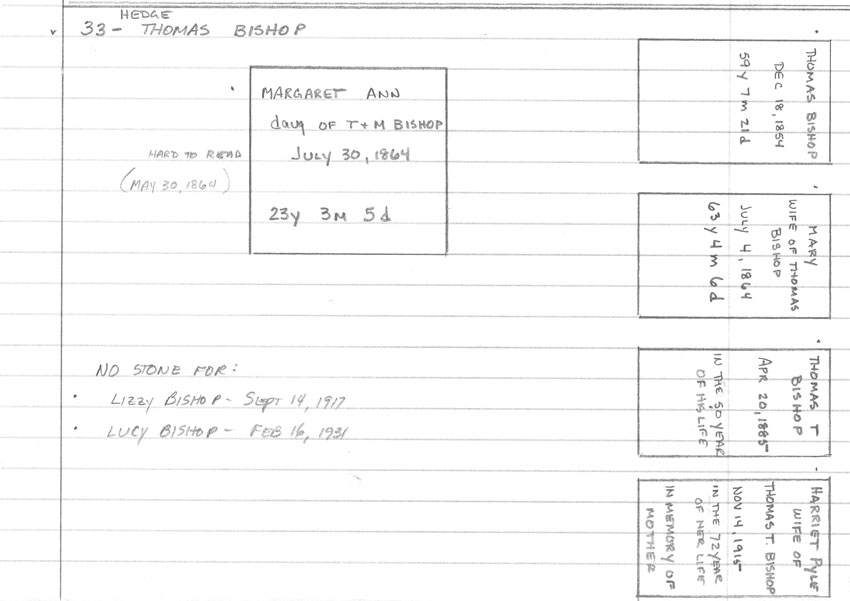 HEDGE
33 - THOMAS BISHOP
MARGARET ANN
daug OF T + M BISHOP
JULY 30, 1864
23y 3M 5d
HARD TO READ
(MAY 30, 1864)
NO STONE FOR:
• LIZZY BISHOP - SEPT 14, 1917
• LUCY BISHOP - FEB 16, 1931
THOMAS BISHOP
DEC 18, 1854
59 y 7 m 21 d
MARY
WIFE OF THOMAS
BISHOP
JULY 4, 1864
63 y 4 m 6 d
THOMAS T
BISHOP
APR 20, 1885
IN THE 50 YEAR
OF HIS LIFE
HARRIET PYLE
WIFE OF
THOMAS T. BISHOP
NOV 14, 1915
IN THE 72 YEAR
OF HER LIFE
IN MEMORY OF
MOTHER